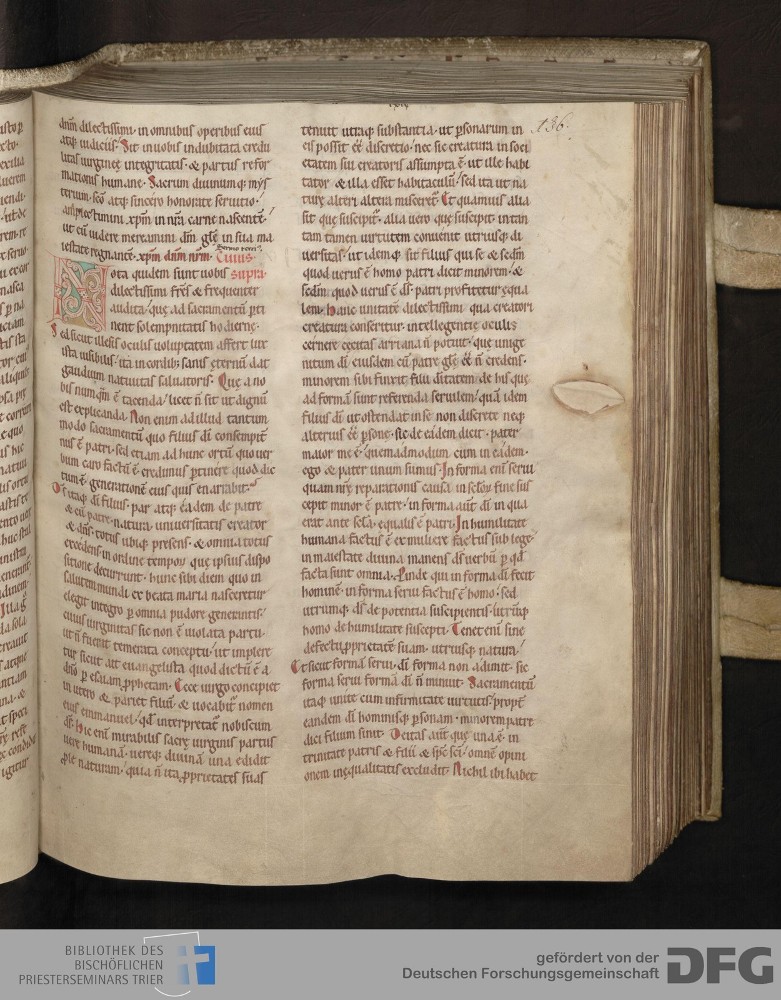 dnm dilectissimi · in omnibus operibus eius
atq; iudiciis · Sit in uobis indubitata credu
litas uirginee integritatis · & partus refor
mationis humane · Sacrum diuinumq; mys
terium · scō atq; sincero honorate seruitio ·
amplectimini xpm in nra carne nascente ·
ut eū uidere mereamini dm glē in sua ma
iestate regnante · xpm dnm nrm · Cuius
Nota quidem sunt uobis supra
dilectissimi frēs & frequenter
audita · que ad sacramentū perti
nent sollempnitatis hodierne ·
Sed sicut illesis oculis uoluptatem affert lux
ista uisibilis · ita in cordib; sanis eternū dat
gaudium natiuitas saluatoris · Que a no
bis numqm ē tacenda · licet n̄ sit ut dignū
est explicanda · Non enim ad illud tantum
modo sacramentū quo filius di consempit
nus ē patri · sed etiam ad hunc ortū quo uer
bum caro factū ē credimus ptinere quod dic
tum ē · generationē eius quis enarrabit ·
Ds itaq; di filius · par atq; eadem de patre
& cū patre natura · uniuersitatis creator
& dns · totus ubiq; presens · & omnia totus
excedens in ordine temporū que ipsius dispo
sitione decurrunt · hunc sibi diem quo in
salutem mundi ex beata maria nasceretur
elegit integro p omnia pudore generantis ·
cuius uirginitas sic non ē uiolata partu ·
ut n̄ fuerit temerata conceptu · ut implere
tur sicut ait euangelista quod dictū ē a
dno p esaiam pphetam · Ecce uirgo concipiet
in utero & pariet filiū · & uocabit nomen
eius emmanuel · qd interpretat nobiscum
ds · Hic enī mirabilis sacre uirginis partus
uere humanā · uereq; diuinā una edidit
ple naturam · quia n̄ ita pprietates suas
tenuit utraq; substantia · ut psonarum in
eis possit ēē discretio · nec sic creatura in soci
etatem sui creatoris assumpta ē · ut ille habi
tator · & illa esset habitaculū · sed ita ut na
ture alteri altera misceret · Et quamuis alia
sit que suscipit · alia uero que suscipit · in tan
tam tamen unitatem conuenit utriusq; di
uersitas · ut idemq; sit filius qui se & sedm
quod uerus ē homo patri dicit minorem · &
sedm quod uerus ē ds · patri profitetur equa
lem · Hanc unitatē dilectissimi · qua creatori
creatura conseritur · intellegentie oculis
cernere cecitas arriana n̄ potuit · que unige
nitum di eiusdem cū patre glē ēē n̄ credens ·
minorem sibi finxit filii ditatem · de his que
ad formā sunt referenda seruilem · quā idem
filius di ut ostendat in se non discrete neq;
alterius ēē psone · sic de eadem dicit · pater
maior me ē · quemadmodum cum in eadem ·
ego & pater unum sumus · In forma enī serui
quam nre reparationis causa in sclōȝ fine sus
cepit minor ē patre · in forma aut di in qua
erat ante sela · equalis ē patri · In humilitate
humana factus ē ex muliere factus sub lege ·
in maiestate diuina manens ds uerbū p qd
facta sunt omnia · Proinde qui in forma di fecit
hominē · in forma serui factus ē homo · sed
utrumq; ds de potentia suscipientis · utrūq;
homo de humilitate suscepti · Tenet enī sine
defectu pprietatē suam utrisusq; natura ·
Et sicut formā serui · di forma non adimit · sic
forma serui formā di n̄ minuit · Sacramentū
itaq; unite cum infirmitate uirtutis · propt
eandem di hominisq; psonam · minorem patre
dici filium sinit · Deitas aut que una ē in
trinitate patris & filii & spc sci · omnē opini
onem inequalitatis excludit · Nichil ibi habet
136.
BIBLIOTHEK DES
BISCHÖFLICHEN
PRIESTERSEMINARS TRIER
gefördert von der
Deutschen Forschungsgemeinschaft
DFG